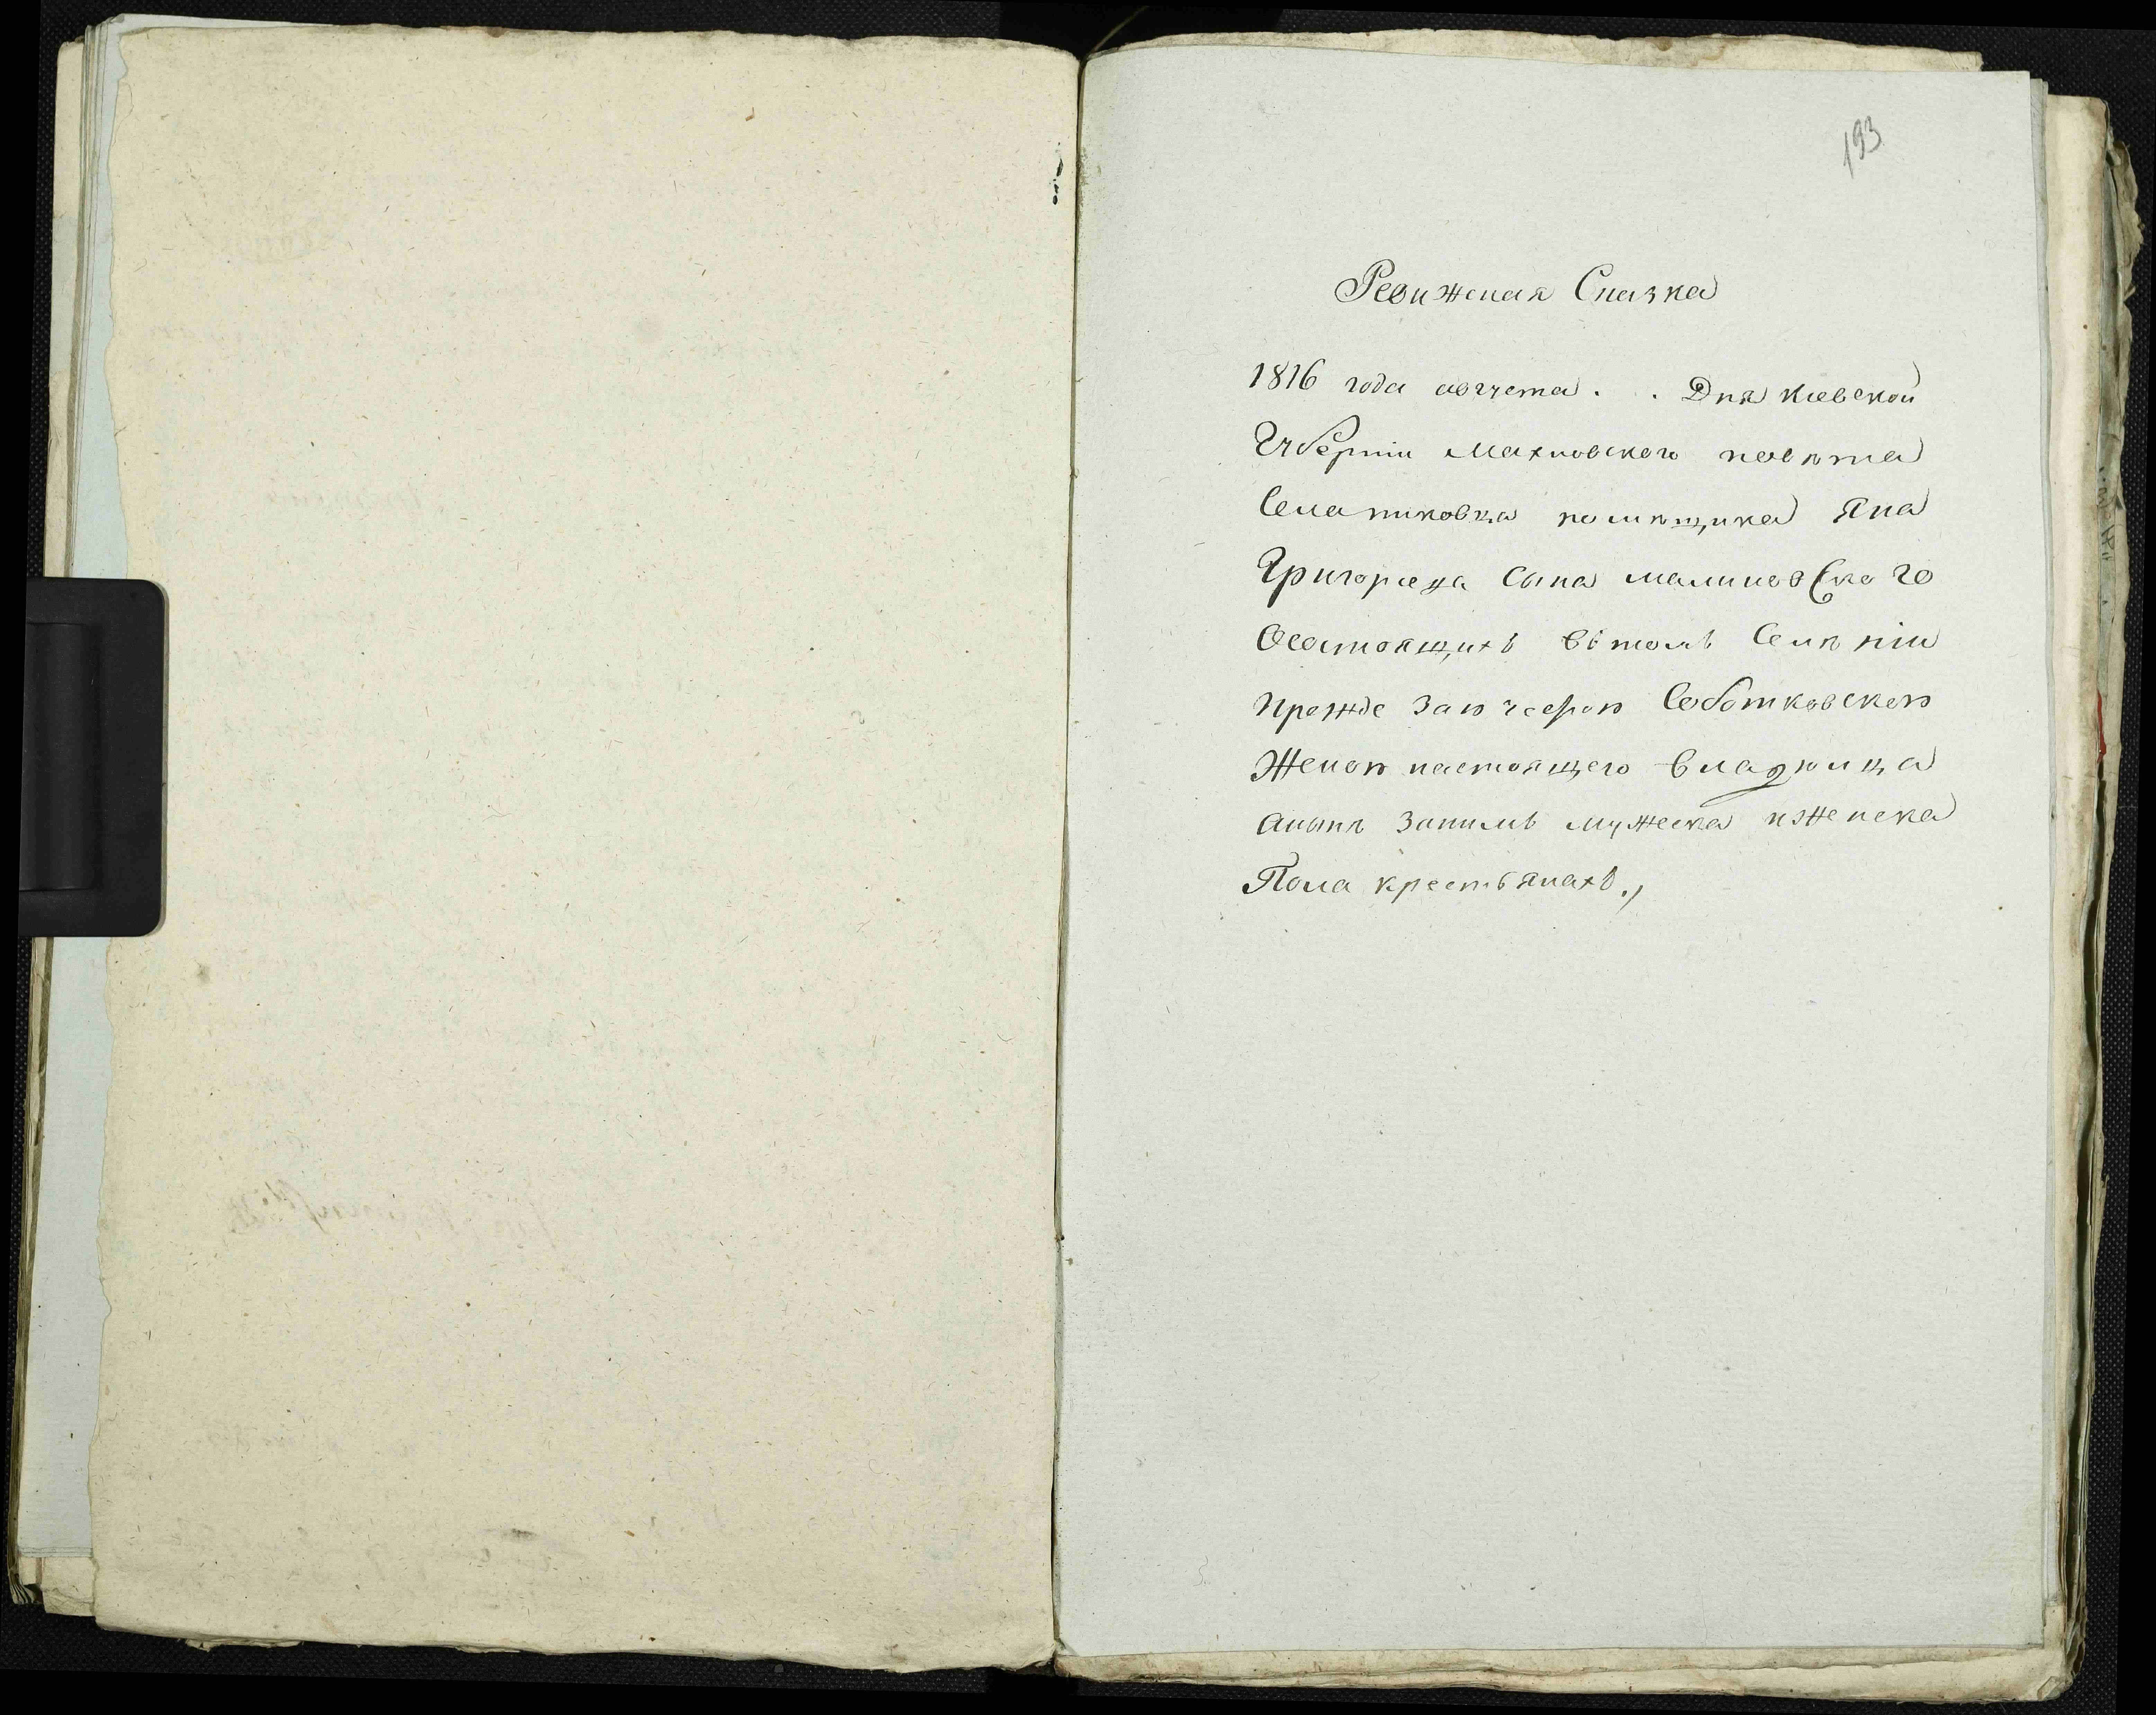 193
Ревижская Сказка
1816 года августа . . Дня киевской
Губерніи Махновского повѣта
Села пиковца помѣщика Яна
Григорьева сына малиновского
Осостоящихъ въ томъ Селѣніи
прежде за
Соботковскою
Женою настоящего владѣлца
анынѣ занимъ мужеска иженска
Пола крестьянахъ.,